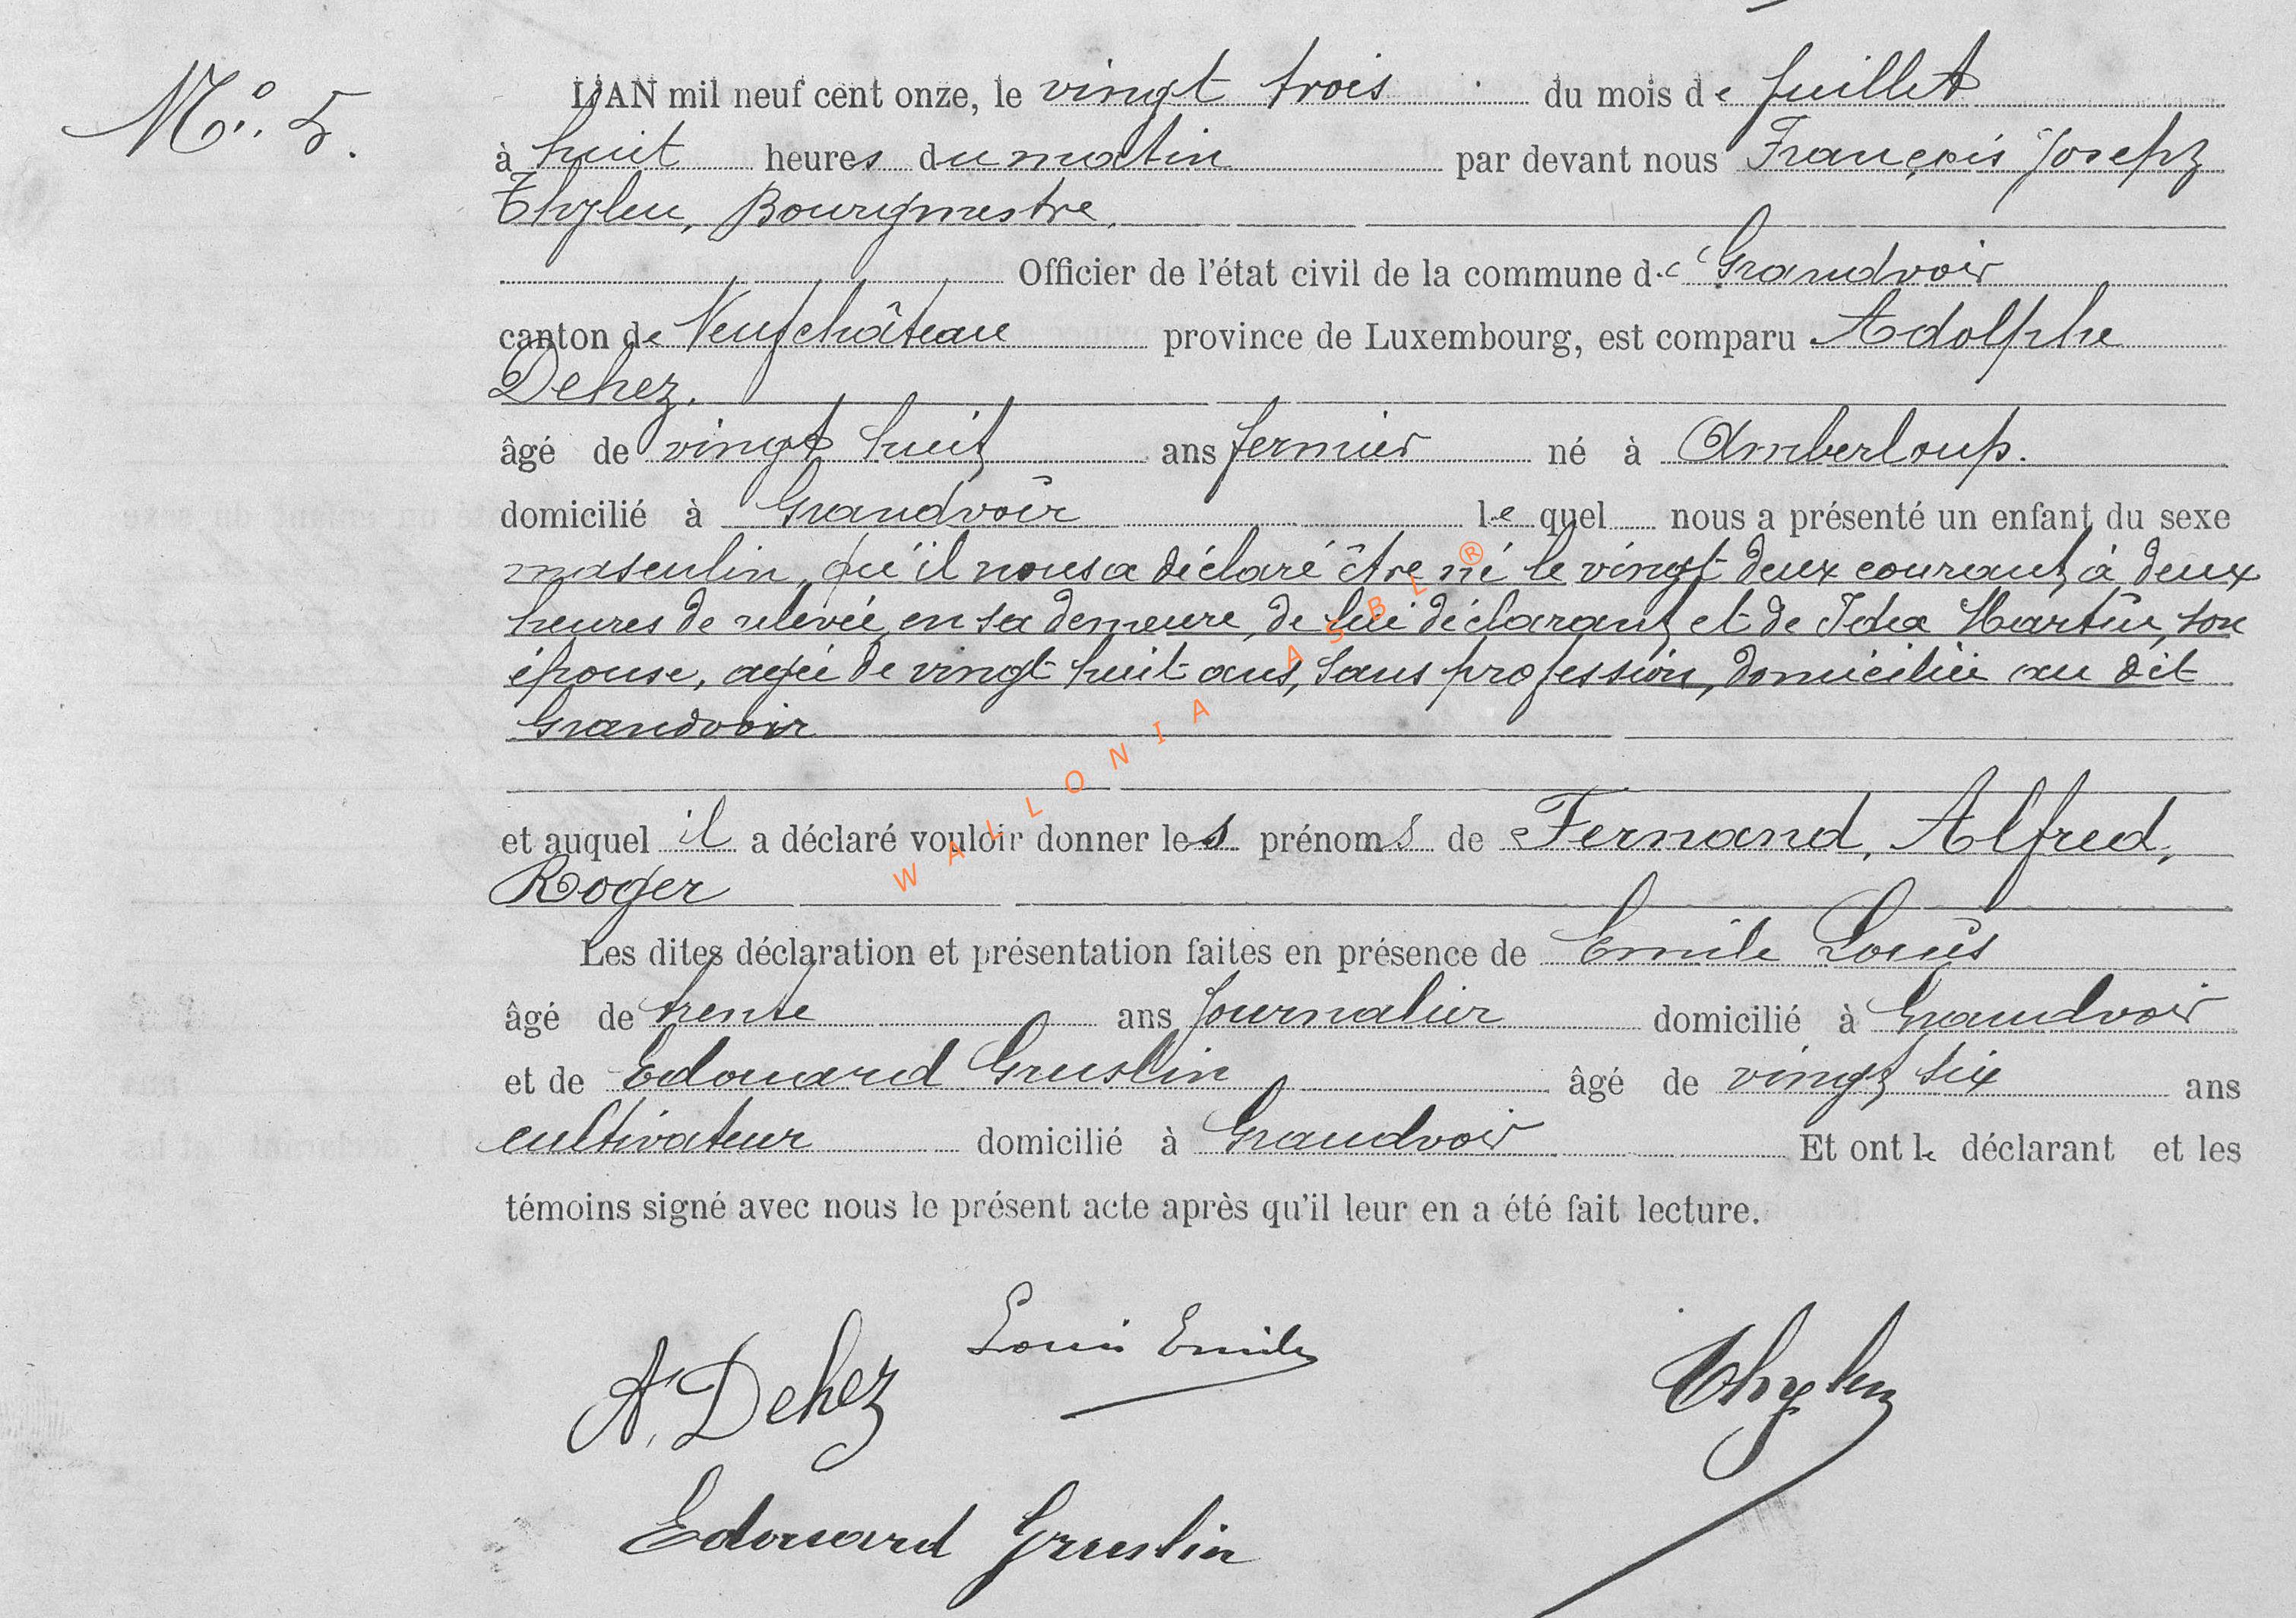 N° 5.
L'AN mil neuf cent onze, le vingt trois du mois de Juillet
à huit heures du matin par devant nous François Joseph
Thyleu, Bourgmestre,
Officier de l'état civil de la commune de Grandvoir
canton de Neufchâteau province de Luxembourg, est comparu Adolphe
Dehez.
âgé de vingt huit ans fermier né à Amberloup.
domicilié à Grandvoir le quel nous a présenté un enfant du sexe
masculin, qu'il nous a déclaré être né le vingt deux courant, à deux
heures de relevée, en sa demeure, de lui déclarant et de Ida Martin, son
épouse, agée de vingt huit ans, sans profession, domiciliée au dit
Grandvoir
et auquel il a déclaré vouloir donner les prénoms de Fernand, Alfred,
Roger
Les dites déclaration et présentation faites en présence de Emile Louis
âgé de trente ans Journalier domicilié à Grandvoir
et de Edouard Gruslin âgé de vingt six ans
cultivateur domicilié à Grandvoir Et ont le déclarant et les
témoins signé avec nous le présent acte après qu'il leur en a été fait lecture.
Louis Emile
A. Dehez Thyleu
Edouard Gruslin
WALLONIA ASBL ®